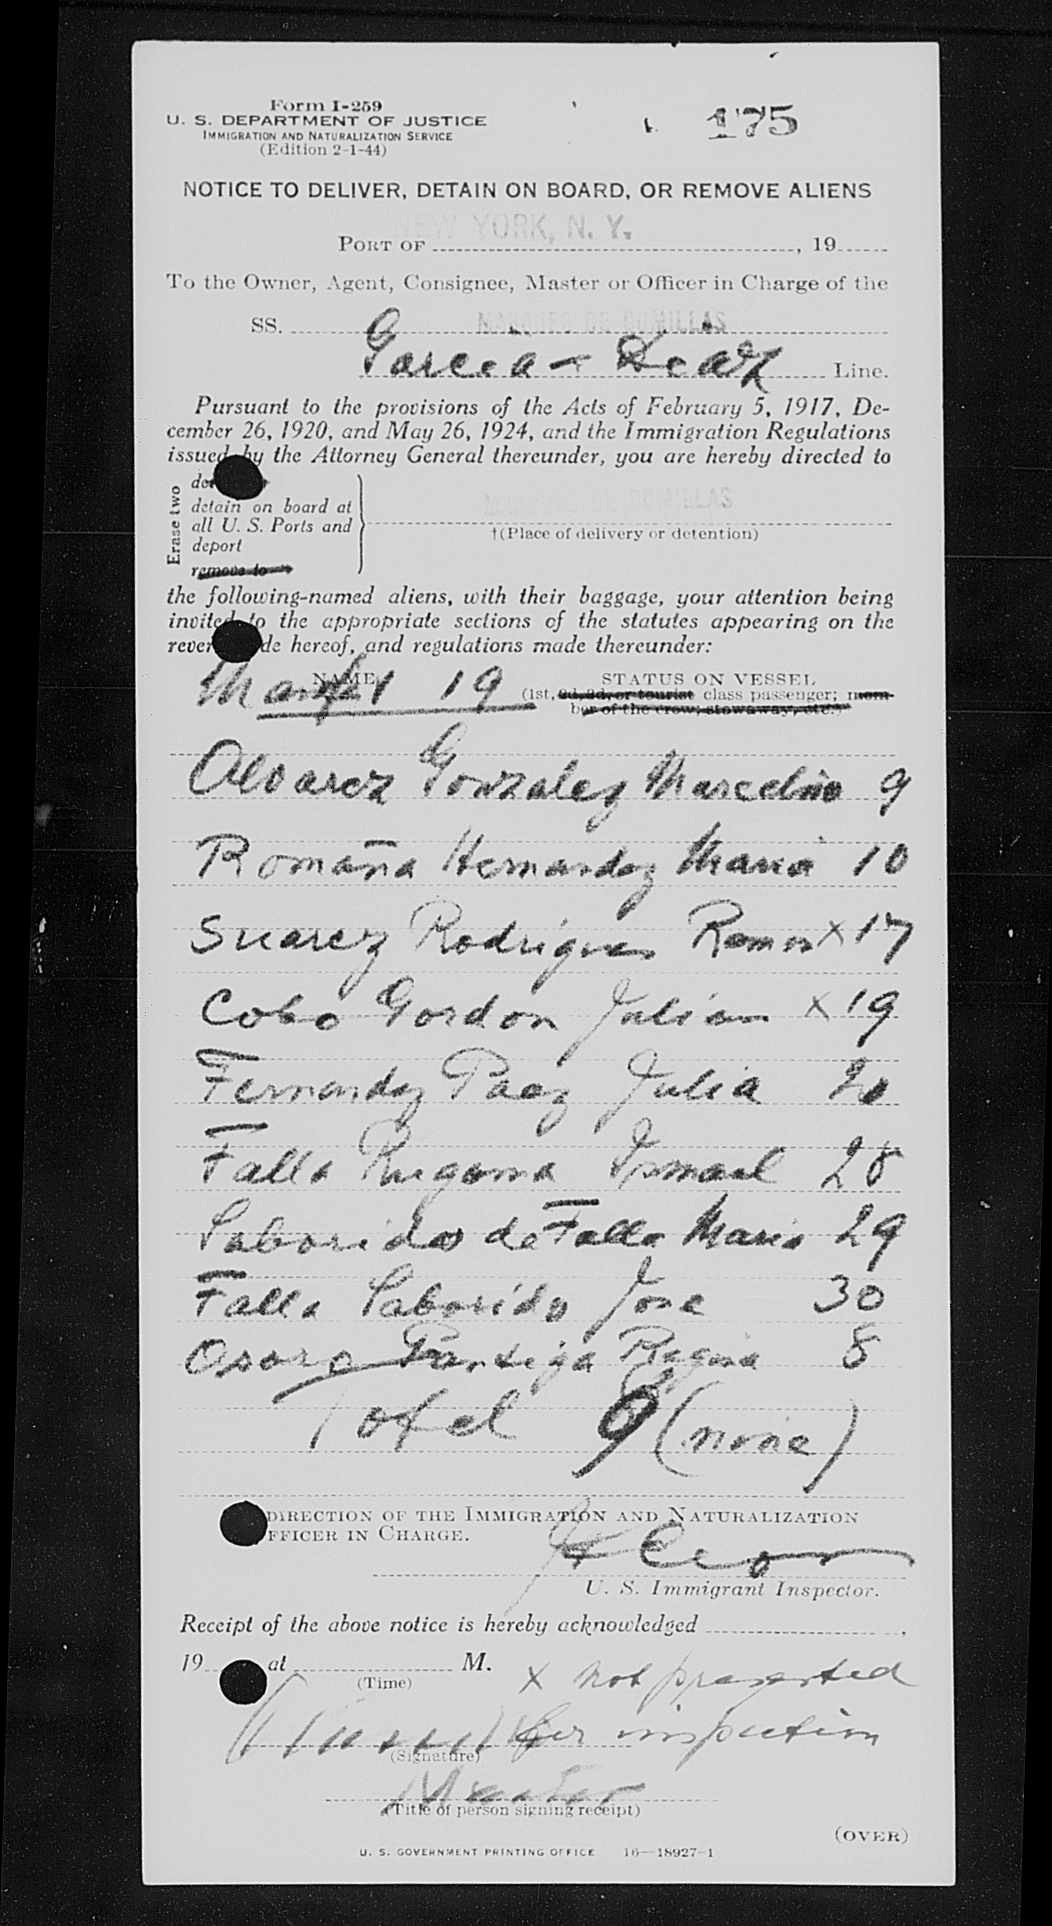 Form I-259
U. S. DEPARTMENT OF JUSTICE
IMMIGRATION AND NATURALIZATION SERVICE
(Edition 2-1-44)
175
NOTICE TO DELIVER, DETAIN ON BOARD, OR REMOVE ALIENS
NEW YORK, N. Y.
PORT OF , 19
To the Owner, Agent, Consignee, Master or Officer in Charge of the
SS. MARQUES DE COMILLAS
Garcia - Diaz Line.
Pursuant to the provisions of the Acts of February 5, 1917, De-
cember 26, 1920, and May 26, 1924, and the Immigration Regulations
issued by the Attorney General thereunder, you are hereby directed to
Erase two
detain on board at
all U. S. Ports and
deport
remove to
MARQUES DE COMILLAS
†(Place of delivery or detention)
the following-named aliens, with their baggage, your attention being
invited to the appropriate sections of the statutes appearing on the
reverse side hereof, and regulations made thereunder:
NAME STATUS ON VESSEL
Manfst 19 (1st, 2d, 3d, or tourist class passenger; mem-
ber of the crew; stowaway, etc.)
Alvarez Gonzalez Marcelino 9
Romaña Hernandez Maria 10
Suarez Rodriguez Ramon x 17
Cobo Gordon Julian x 19
Fernandez Paez Julia 20
Falla Ismael 28
Saborido de Falla Maria 29
Falla Saborido Jose 30
Osoro Pantiga Regina 8
Total 9 (nine)
DIRECTION OF THE IMMIGRATION AND NATURALIZATION
OFFICER IN CHARGE.
U. S. Immigrant Inspector.
Receipt of the above notice is hereby acknowledged ,
19 at M.
(Time)
x not presented
for inspection
(Signature)
Master
(Title of person signing receipt)
(OVER)
U. S. GOVERNMENT PRINTING OFFICE 16—18927-1